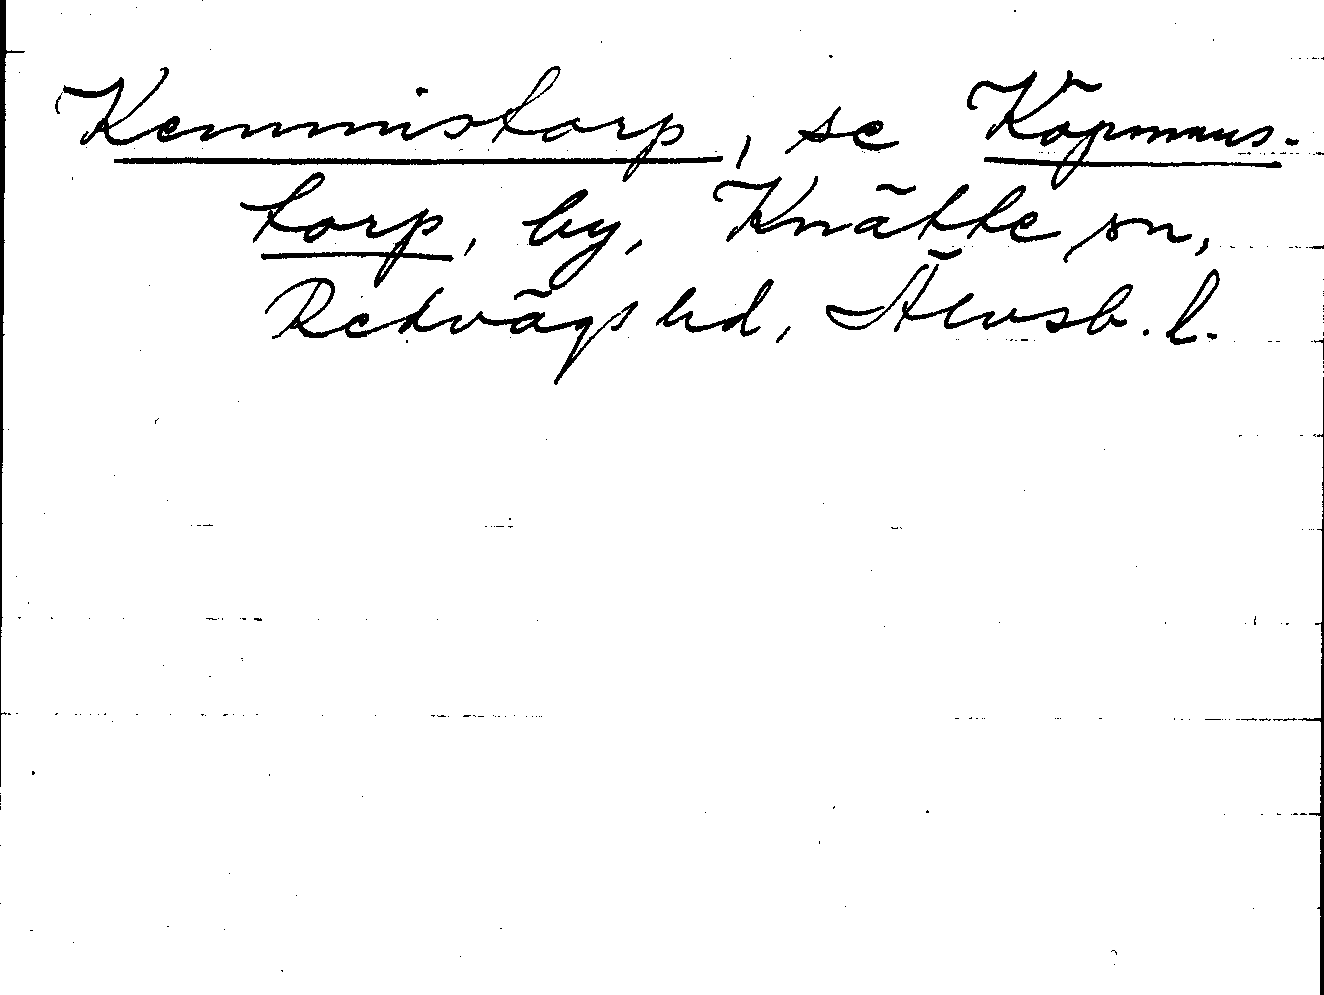 Kemmistorp, se Köpmans-
torp, by, Knätte sn,
Redvägs hd, Älvsb. l.